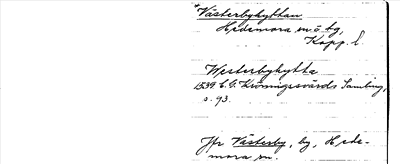 Västerbyhyttan
Hedemora sn o. by,
Kopp. l.
Westerbyhytta
1539 C. G. Kröningssvärds Samling,
s. 93.
Jfr Västerby, by, Hede-
mora sn.